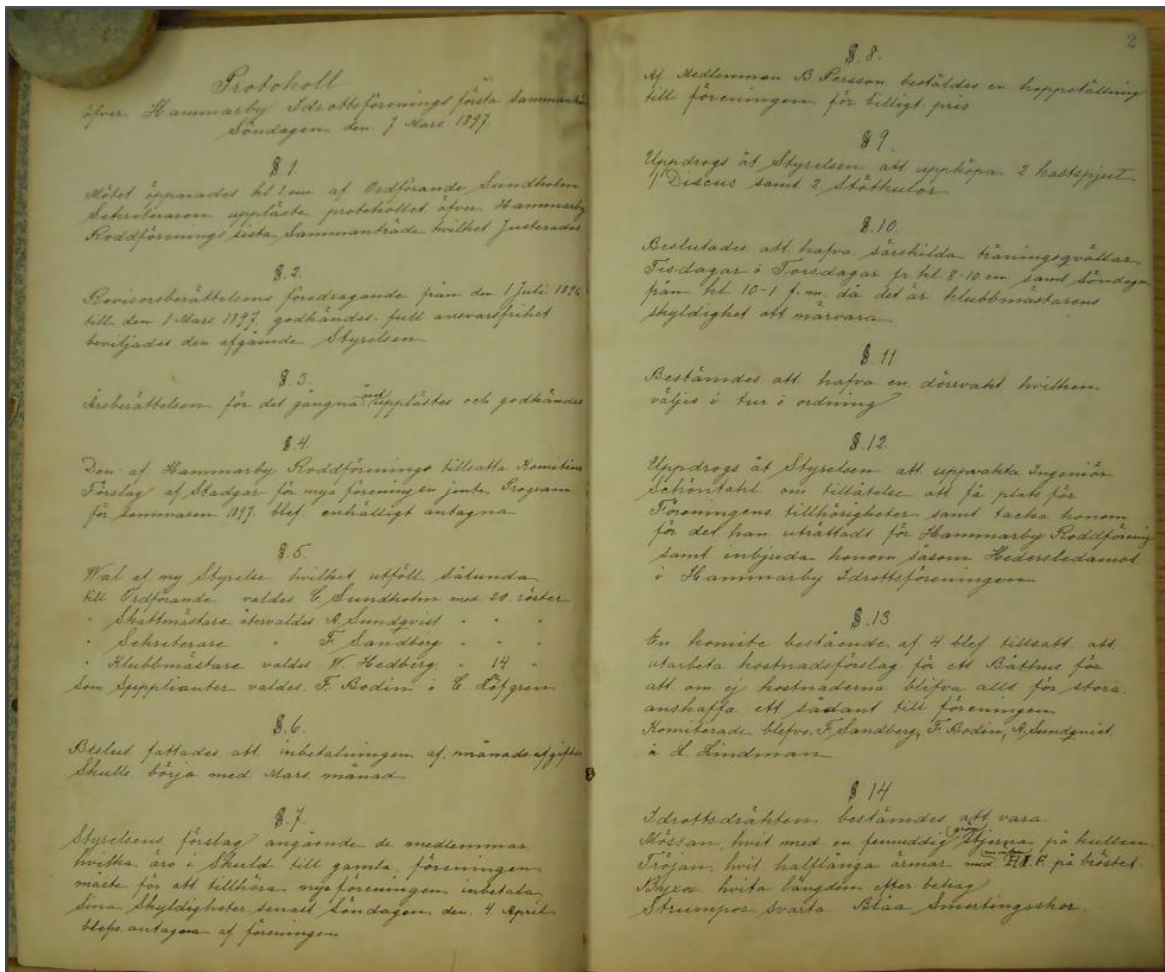 Protokoll
öfver Hammarby Idrottsförenings första Sammanträ
Söndagen den 7 Mars 1897
§.1
Mötet öppanades kl. 1 em. af Ordförande Sundholm
Sekreteraren uppläste protokollet öfver Hammarby
Roddförenings sista Sammanträde hvilket Justerades
§.2.
Revisorsberättelsens föredragande från den 1 Juli 1896
till den 1 Mars 1897. godkändes. full ansvarsfrihet
beviljades den afgående Styrelsen
§.3.
Årsberättelsen för det gångna året upplästes och godkändes
§.4.
Den af Hammarby Roddförenings tillsatta Komitéens
Förslag af Stadgar för nya föreningen jemte Program
för sommaren 1897. blef. enhälligt antagna
§.5.
Wal af ny Styrelse hvilket utföll sålunda
till Ordförande valdes C Sundholm med 20 röster
" Skattmästare återvaldes A. Sundqvist " " "
" Sekreterare " F. Sandberg " " "
" Klubbmästare valdes W. Hedberg " 14 "
Som Suppplianter valdes. F. Bodin o C. Löfgren
§.6.
Beslut fattades att inbetalningen af månadsafgifter
Skulle börja med Mars månad
§.7.
Styrelsens förslag angående de medlemmar
hvilka äro i Skuld till gamla föreningen
måste för att tillhöra nya föreningen inbetala
sina Skyldigheter senast Söndagen den 4 April
blefvo antagna af föreningen
2
§.8.
Af Medlemmen B Persson bestäldes en hoppställning
till föreningen för billigt pris
§ 9.
Uppdrogs åt Styrelsen att uppköpa 2 kastspjut
1 Discus samt 2 Stötkulor
§.10.
Beslutades att hafva särskilda träningsqvällar
Tisdagar o Torsdagar fr kl 8-10 em samt Söndagar
från kl 10-1 f.m. då det är klubbmästarens
skyldighet att närvara
§.11
Bestämdes att hafva en dörrvakt hvilken
väljes i tur o ordning
§.12
Uppdrogs åt Styrelsen att uppvakta Ingeniör
om tillåtelse att få plats för
Föreningens tillhörigheter samt tacka honom
för det han uträttadt för Hammarby Roddförening
samt inbjuda honom såsom Hedersledamot
i Hammarby Idrottsföreningen
§.13
En komite bestående af 4 blef tillsatt att
utarbeta kostnadsförslag för ett Båthus för
att om ej kostnaderna blifva allt för stora
anskaffa ett sådant till föreningen
Komiterade blefvo F. Sandberg, F. Bodin, A. Sundqvist
o A. Lindman
§ 14
Idrottsdräkten bestämdes att vara.
Mössan, hvit med en femuddig grön Stjerna på kullen
Tröjan, hvit halflånga ärmar med H.I.F. på bröstet
Byxor hvita längden efter behag
Strumpor Svarta. Blåa Smertingsskor.